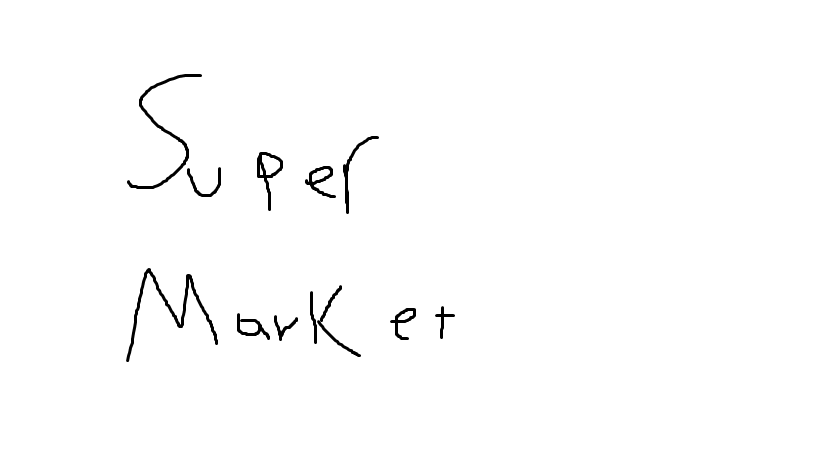 Super
Market